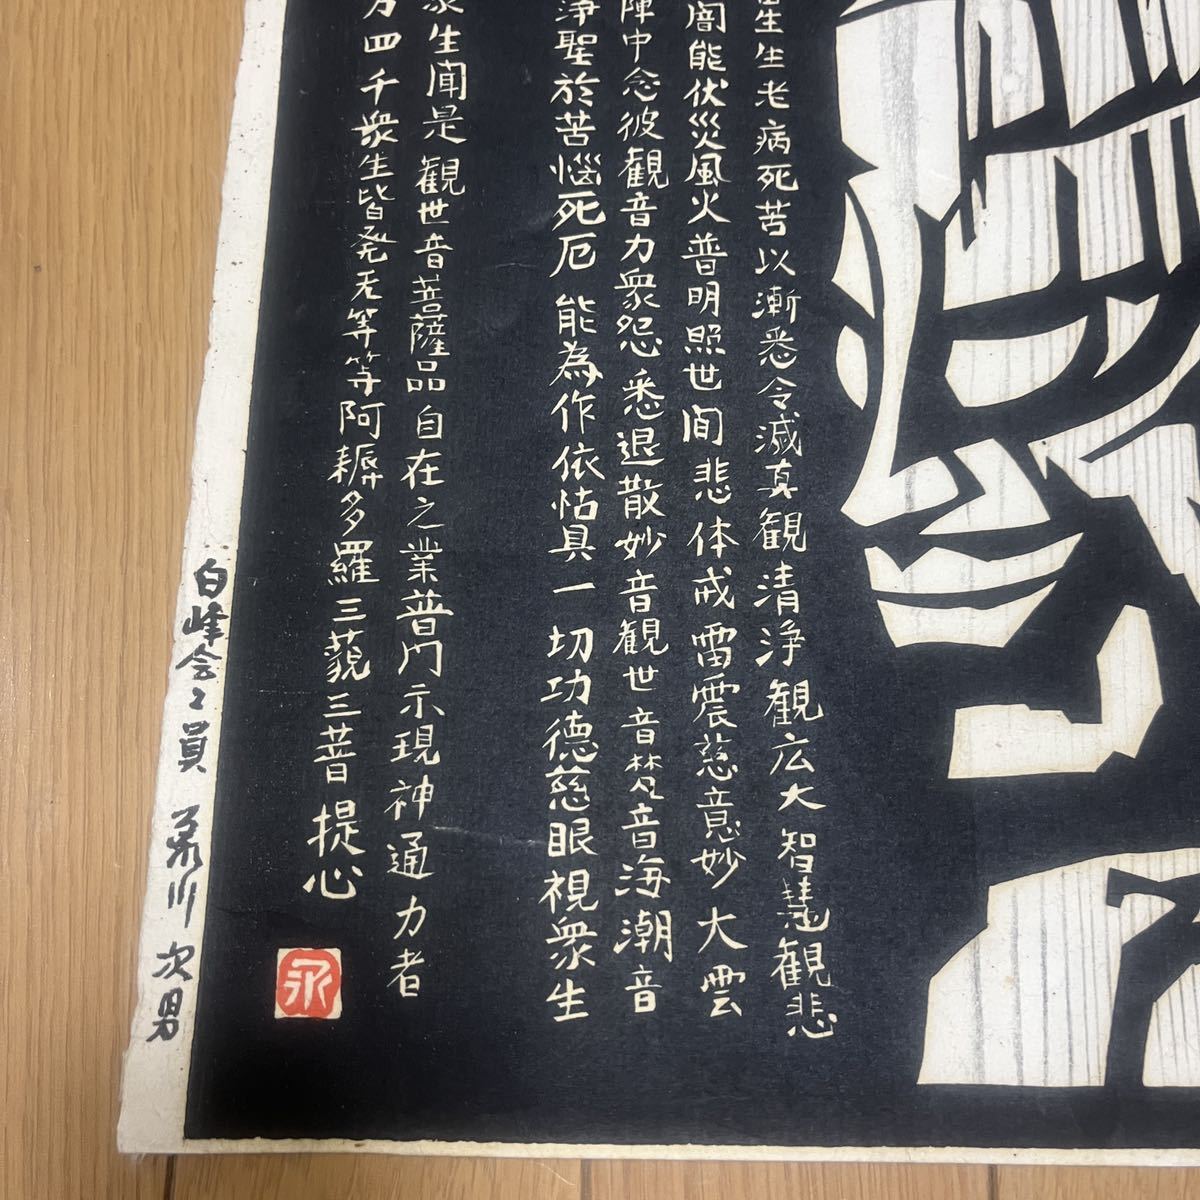 生老病死苦以漸悉令滅真観清浄観広大智慧観悲
闇能伏災風火普明照世间悲体戒雷震慈意妙大雲
陣中念彼観音力衆怨悉退散妙音観世音梵音海潮音
浄聖於苦悩死厄能為作依怙具一切功徳慈眼視衆生
衆生聞是観世音菩薩品自在之業普門示現神通力者
万四千衆生皆発无等等阿耨多羅三藐三菩提心
白峰会々員 荒川次男
永